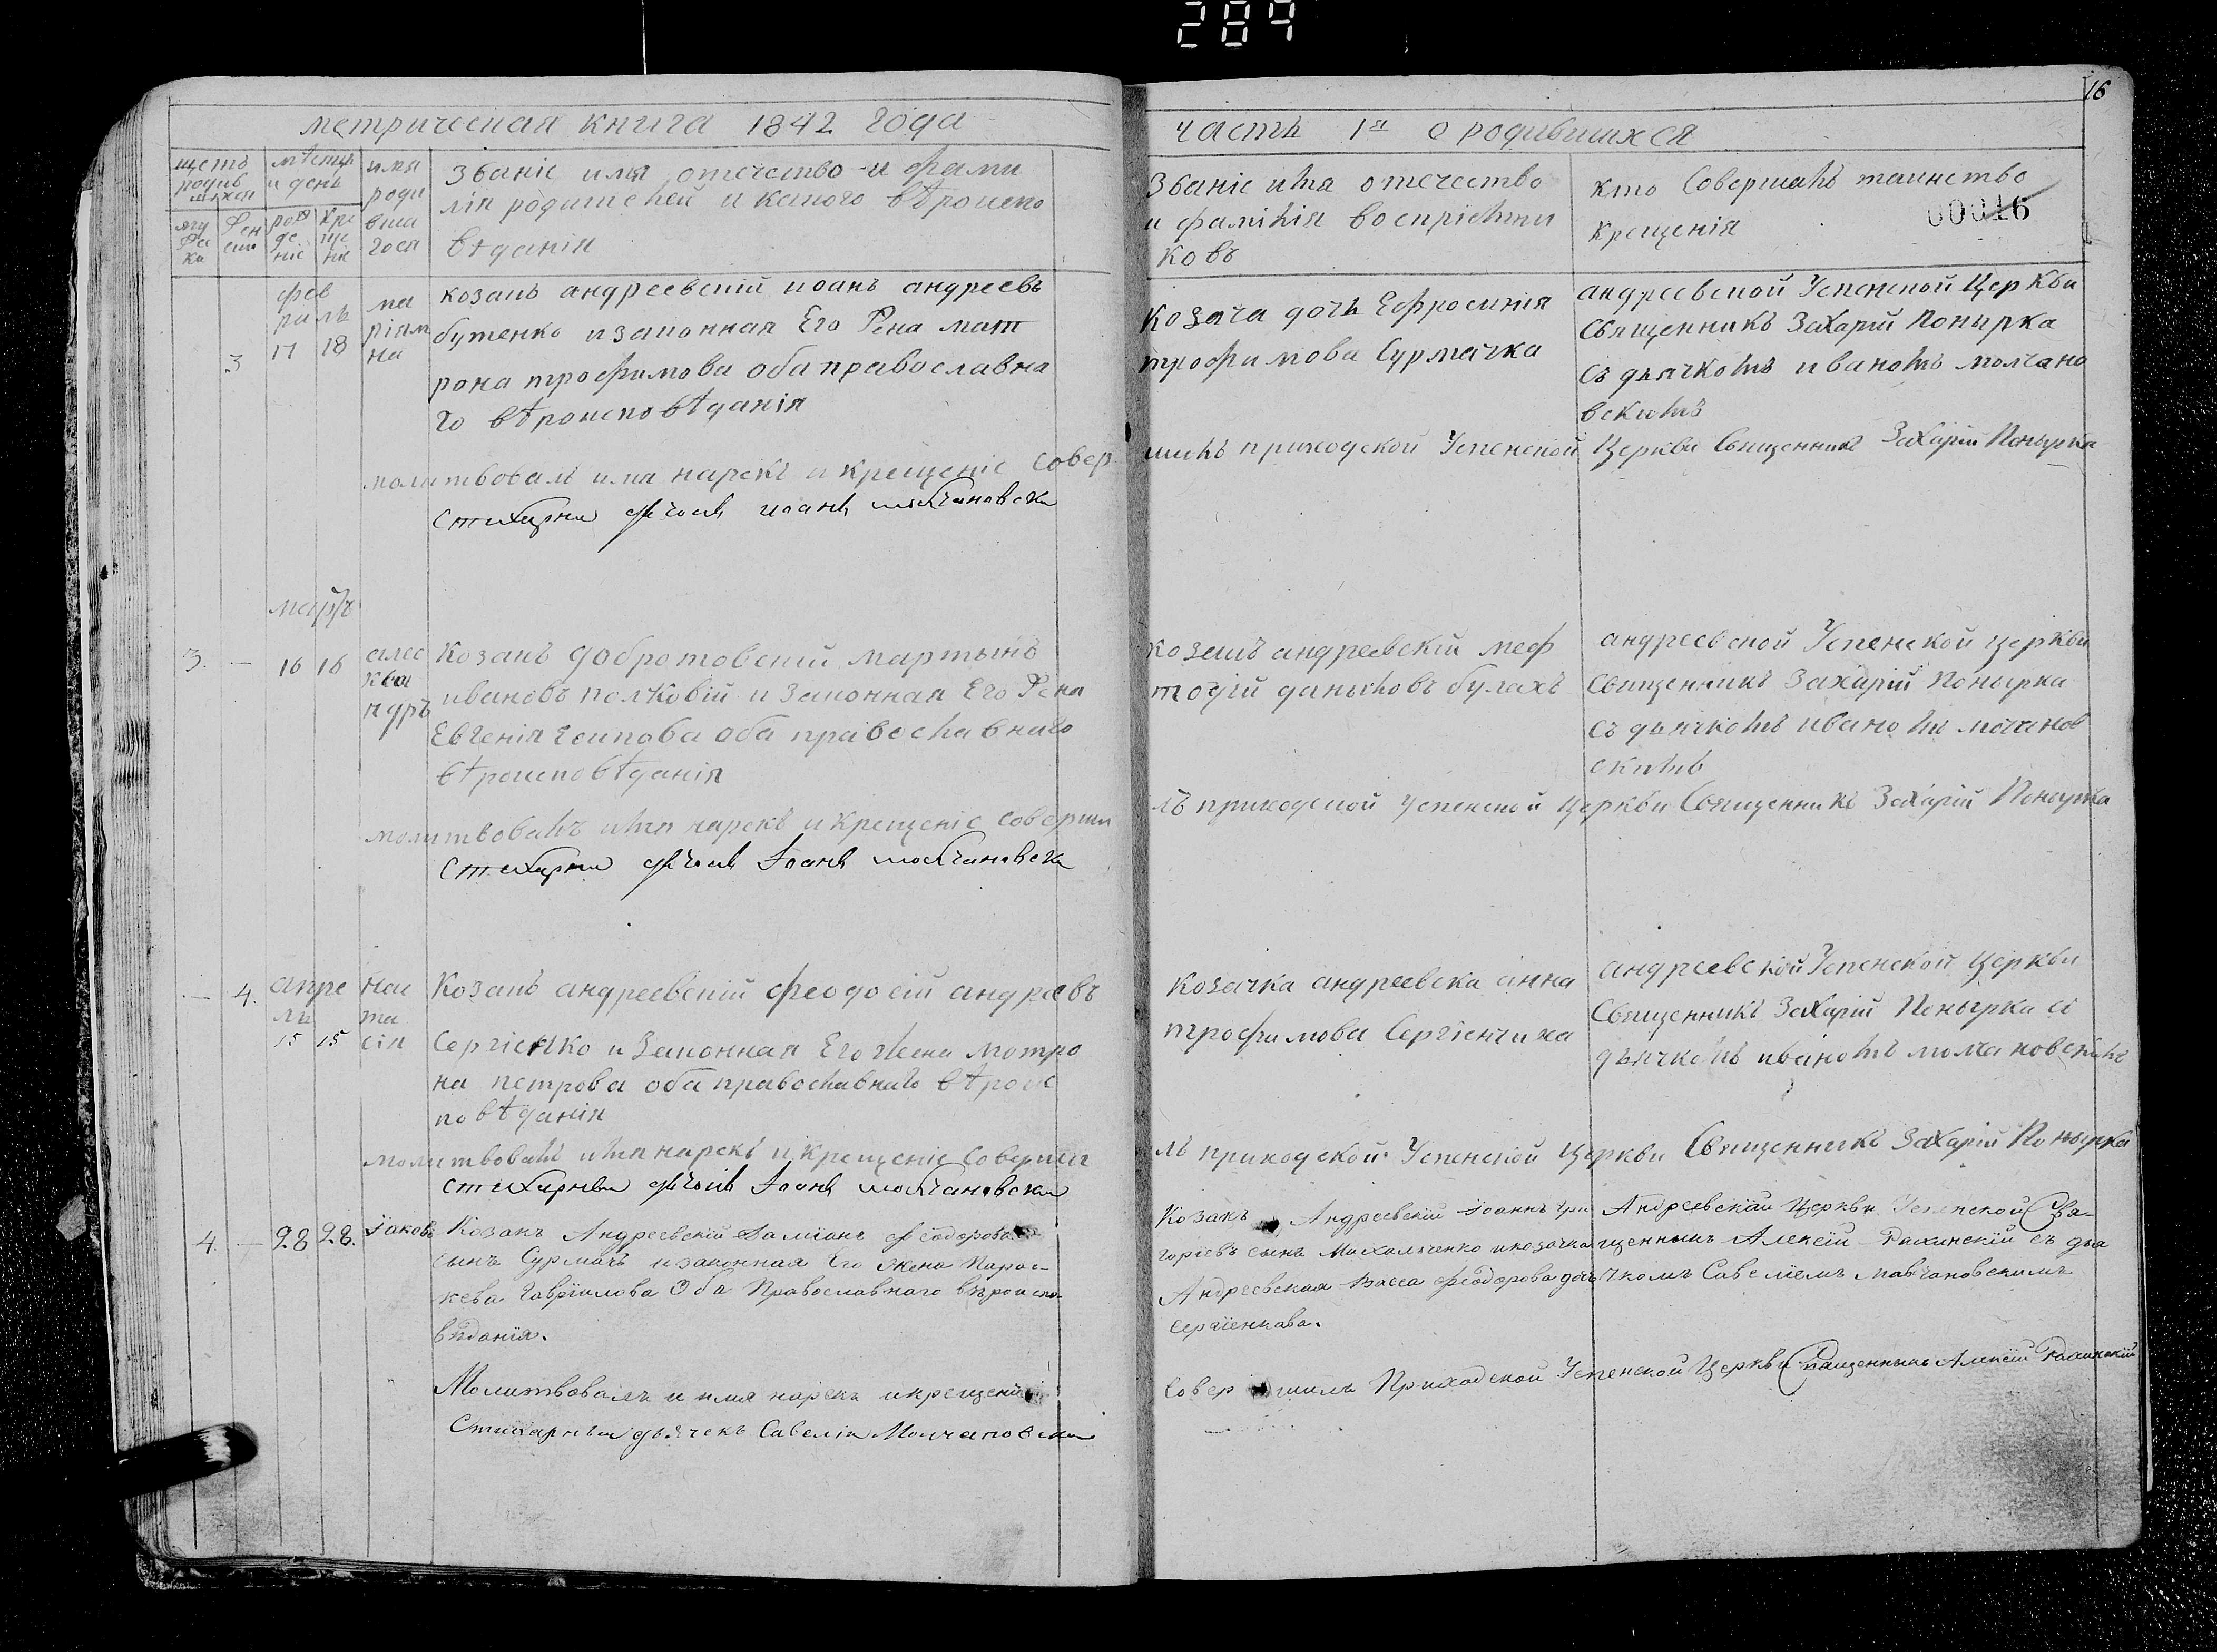 284
16
метрическая книга 1842 года
щетъ родив шихся
мѣсяц и день
имя роди вша гося
муж еска
жен ски
рож де ніе
кре ще ніе
званіе имя отечество и фами
лія родителей и какого вѣроиспо
вѣданія
часть 1я о родившихся
званіе имя отечество
и фамилія воспріемни
ковъ
кто совершалъ таинство
крещенія
00016
3
фев раль
17 18
ма ріям на
козакъ андреевскій иоанъ андреевъ
бутенко и законная Его жена мат
рона трофимова оба православна
го вѣроисповѣданія
козача дочь Ефросинія
трофимова Сурмачка
андреевской Успенской Церкви
Священникъ Захарій Понырка
съ дьячкомъ иваномъ молчано
вскимъ
молитвовалъ имя нарекъ и крещеніе совер
шилъ приходской Успенской Церкви Священникъ Захарій Понырка
Стихарни дячокъ иоанъ молчановски
мартъ
3. — 16 16
алес кса ндръ
Козакъ добротовскій мартынъ
ивановъ полковій и законная Его жена
Евгенія есипова оба православнаго
вѣроисповѣданія
козакъ андреевскій меф
тодій даниловъ булахъ
андреевской Успенской церкви
Священникъ Захарій Понырка
съ дьячкомъ иваномъ мочанов
скимъ
молитвовалъ имя нарекъ и крещеніе соверши
лъ приходской успенской церкви Священникъ Захарій Понырка
Стихарни дячокъ Іоанъ молчановски
— 4.
апре ль
15 15
нас та сія
Козакъ андреевскій феодосій андреевъ
Сергіенко и законная Его жена мотро
на петрова оба православнаго вѣроис
повѣданія
козачка андреевска анна
трофимова Сергіенчиха
андреевской Успенской Церкви
Священникъ Захарій Понырка съ
дьячкомъ иваномъ молчановскимъ
молитвовалъ имя нарекъ и крещеніе соверши
лъ приходской Успенской Церкви Священникъ Захарій Понырка
Стихарны дячокъ Іоанъ молчановски
4. — 28 28.
Іаковъ
Козакъ Андреевскій Даміанъ Феодоровъ
сынъ Сурмачъ и законная Его жена Парас-
кева Гавріилова Оба Православнаго вѣроиспо-
вѣданія.
Козакъ Андреевскій Іоаннъ Гри
горіевъ сынъ Михальченко и козачка
Андреевская Васса Феодорова дочь
Сергіенкова.
Андреевской Церкви Успенской Свя-
щенникъ Алексій Рахинскій съ дья
чкомъ Савеліемъ Мовчановскимъ
Молитвовалъ и имя нарекъ и крещеніе
Совершилъ Приходской Успенской Церкви Священникъ Алексій Рахинскій
Стихарный дьячекъ Савелій Молчановски